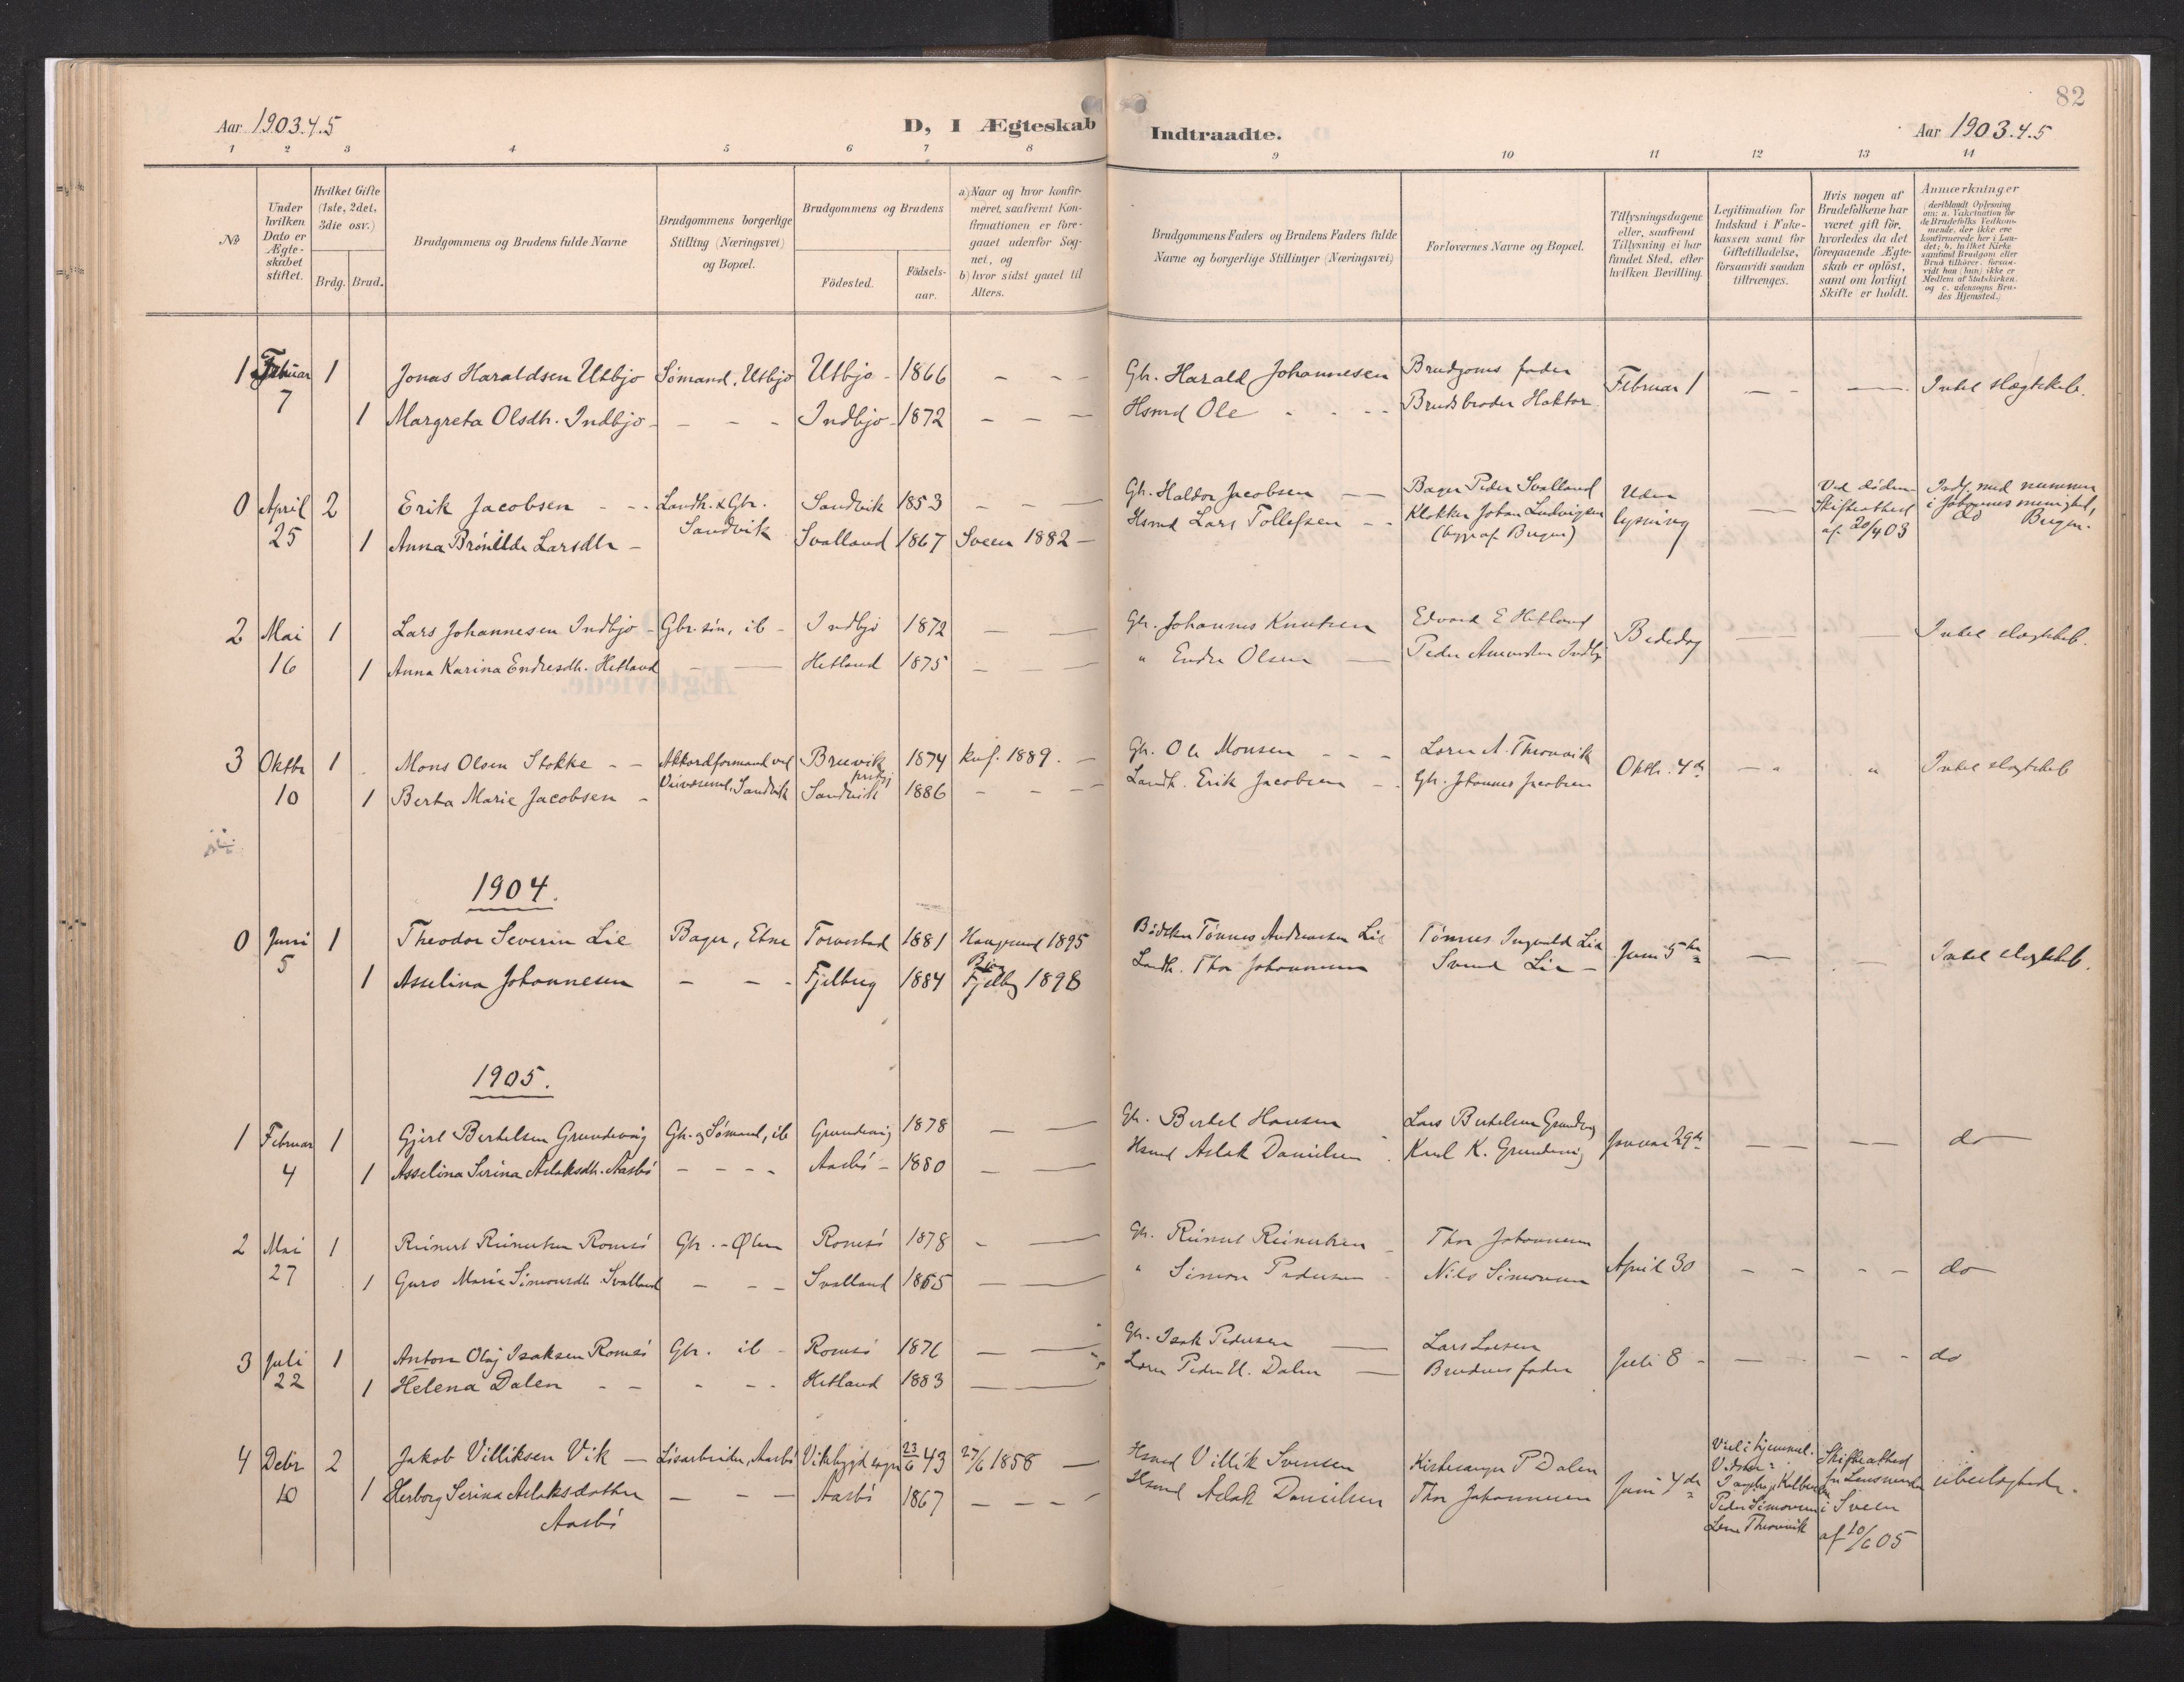 82
Aar 1903.4.5
D, I Ægteskab Indtraadte.
Aar 1903.4.5
1 2 3 4 5 6 7 8 9 10 11 12 13 14
No
Under hvilken Dato er Ægteskabet stiftet.
Hvilket Gifte (1ste, 2det, 3die osv.)
Brdg. Brud.
Brudgommens og Brudens fulde Navne
Brudgommens borgerlige Stilling (Næringsvei) og Bopæl.
Brudgommens og Brudens
Födested. Födselsaar.
a) Naar og hvor konfirmeret, saafremt Konfirmationen er foregaaet udenfor Sognet, og
b) hvor sidst gaaet til Alters.
Brudgommens Faders og Brudens Faders fulde Navne og borgerlige Stillinger (Næringsvei)
Forlovernes Navne og Bopæl.
Tillysningsdagene eller, saafremt Tillysning ei har fundet Sted, efter hvilken Bevilling.
Legitimation for Indskud i Enkekassen samt for Giftetilladelse, forsaavidt saadan tiltrænges.
Hvis nogen af Brudefolkene har været gift för, hvorledes da det foregaaende Ægteskab er oplöst, samt om lovligt Skifte er holdt.
Anmærkninger (deriblandt Oplysning om: a. Vakcination for de Brudefolks Vedkommende, der ikke ere konfirmerede her i Landet; b. hvilket Kirkesamfund Brudgom eller Brud tilhører, forsaavidt han (hun) ikke er Medlem af Statskirken, og c. udensogns Brudes Hjemsted.)
1 Februar 1 Jonas Haraldsen Utbjo Sömand, Utbjo Utbjo - 1866 - - - Gbr. Harald Johannesen Brudgoms fader Februar 1 - - - Intet slægtskb.
7 1 Margreta Olsdtr. Indbjo - - - - Indbjo - 1872 - - - Hsmd Ole - - - Brudsbroder Haktor
0 April 2 Erik Jacobsen - - Landh. & Gbr. Sandvik 1853 - - - Gbr. Haldor Jacobsen - - Bager Peder Svalland Uden - Ved döden Indf. med nummer
25 1 Anna Brönilde Larsdtr - Sandvik Svalland 1867 Sveen 1882 - Hsmd Lars Tollefsen - - Klokker Johan Ludvigsen lysning Skifteattest i Johannes menighed,
(begge af Bergen) af 20/4 03 Bergen.
2 Mai 1 Lars Johannesen Indbjo - Gbr. sön, ib - Indbjo 1872 - - Gbr. Johannes Knutsen Edvard E Hetland Bededag - - Intet slægtskb.
16 1 Anna Karina Endresdtr. Hetland - - Hetland 1875 - - " Endre Olsen - Peder Amundsen Indbjo
3 Oktbr 1 Mons Olsen Stokke - - Akkordformand ved Breivik 1874 Knf. 1889. - Gbr. Ole Monsen - - - Oktbr. 4de - " " Intet slægtskb
10 1 Berta Marie Jacobsen - Veivæsenet, Sandvik Sandvik 1886 - - - Landh. Erik Jacobsen - - Gbr. Johannes Jacobsen
1904.
0 Juni 1 Theodor Severin Lie Bager, Etne Torvestad 1881 Haugesund 1895 Bödker Tönnes Andreassen Lie Tönnes Ingvald Lie Juni 5te - - Intet slægtskb.
5 1 Asselina Johannesen - - - Fjelberg 1884 Fjelbg 1898 Landh. Thor Johannesen Svend Lie -
1905.
1 Februar 1 Gjert Bertelsen Grundevig Gbr. og Sömand, ib Grundevig 1878 - - Gbr. Bertel Hansen Lars Bertelsen Grundevg Januar 29de - - do
4 1 Asselina Serina Aslaksdtr. Aasbö - - - - Aasbö - 1880 - - Hsmd Aslak Danielsen Karl K. Grundevig
2 Mai 1 Reinert Reinertsen Romsö Gbr. - Ölen Romsö 1878 - - Gbr. Reinert Reinertsen - Thor Johannesen April 30 - - - - do
27 1 Guro Maria Simonsdtr. Svalland - - - Svalland 1865 - - " Simon Pedersen - Nils Simonsen
3 Juli 1 Anton Olaj Isaksen Romsö Gbr. ib - Romsö 1876 - - Gbr. Isak Pedersen - Lars Larsen Juli 8 - - - - do
22 1 Helena Dalen - - - - - Hetland 1883 - - Peder E. Dalen - Brudens fader
4 Debr 2 Jakob Villiksen Vik - Lösarbeider, Aasbö Vikebygd sogn 23/6 43 27/6 1858 - Hsmd Villik Svensen Kirkesanger P Dalen Juni 4de Viet i hjemmet. Skifteattest ubeslægtede.
10 1 Herborg Serina Aslaksdatter - - - Aasbö 1867 - - - Hsmd Aslak Danielsen Thor Johannesen Vidner: fra Lensmanden
Aasbö Peder Simonsen i Sveen
af 10/6 05